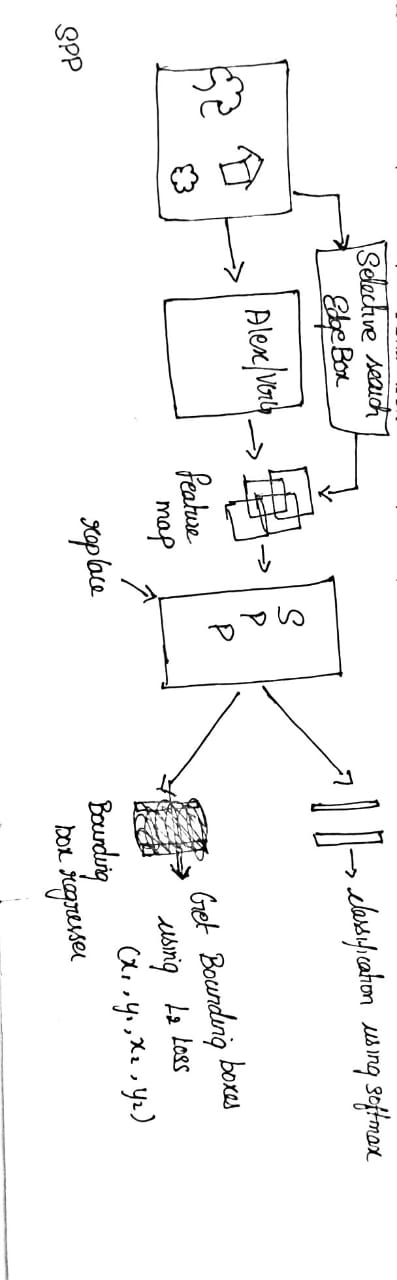 Selective search
EdgeBox
Alex/VGG
feature
map
S
P
P
replace
→ classification using softmax
Get Bounding boxes
using L2 Loss
(x1, y1, x2, y2)
Bounding
box regresser
SPP